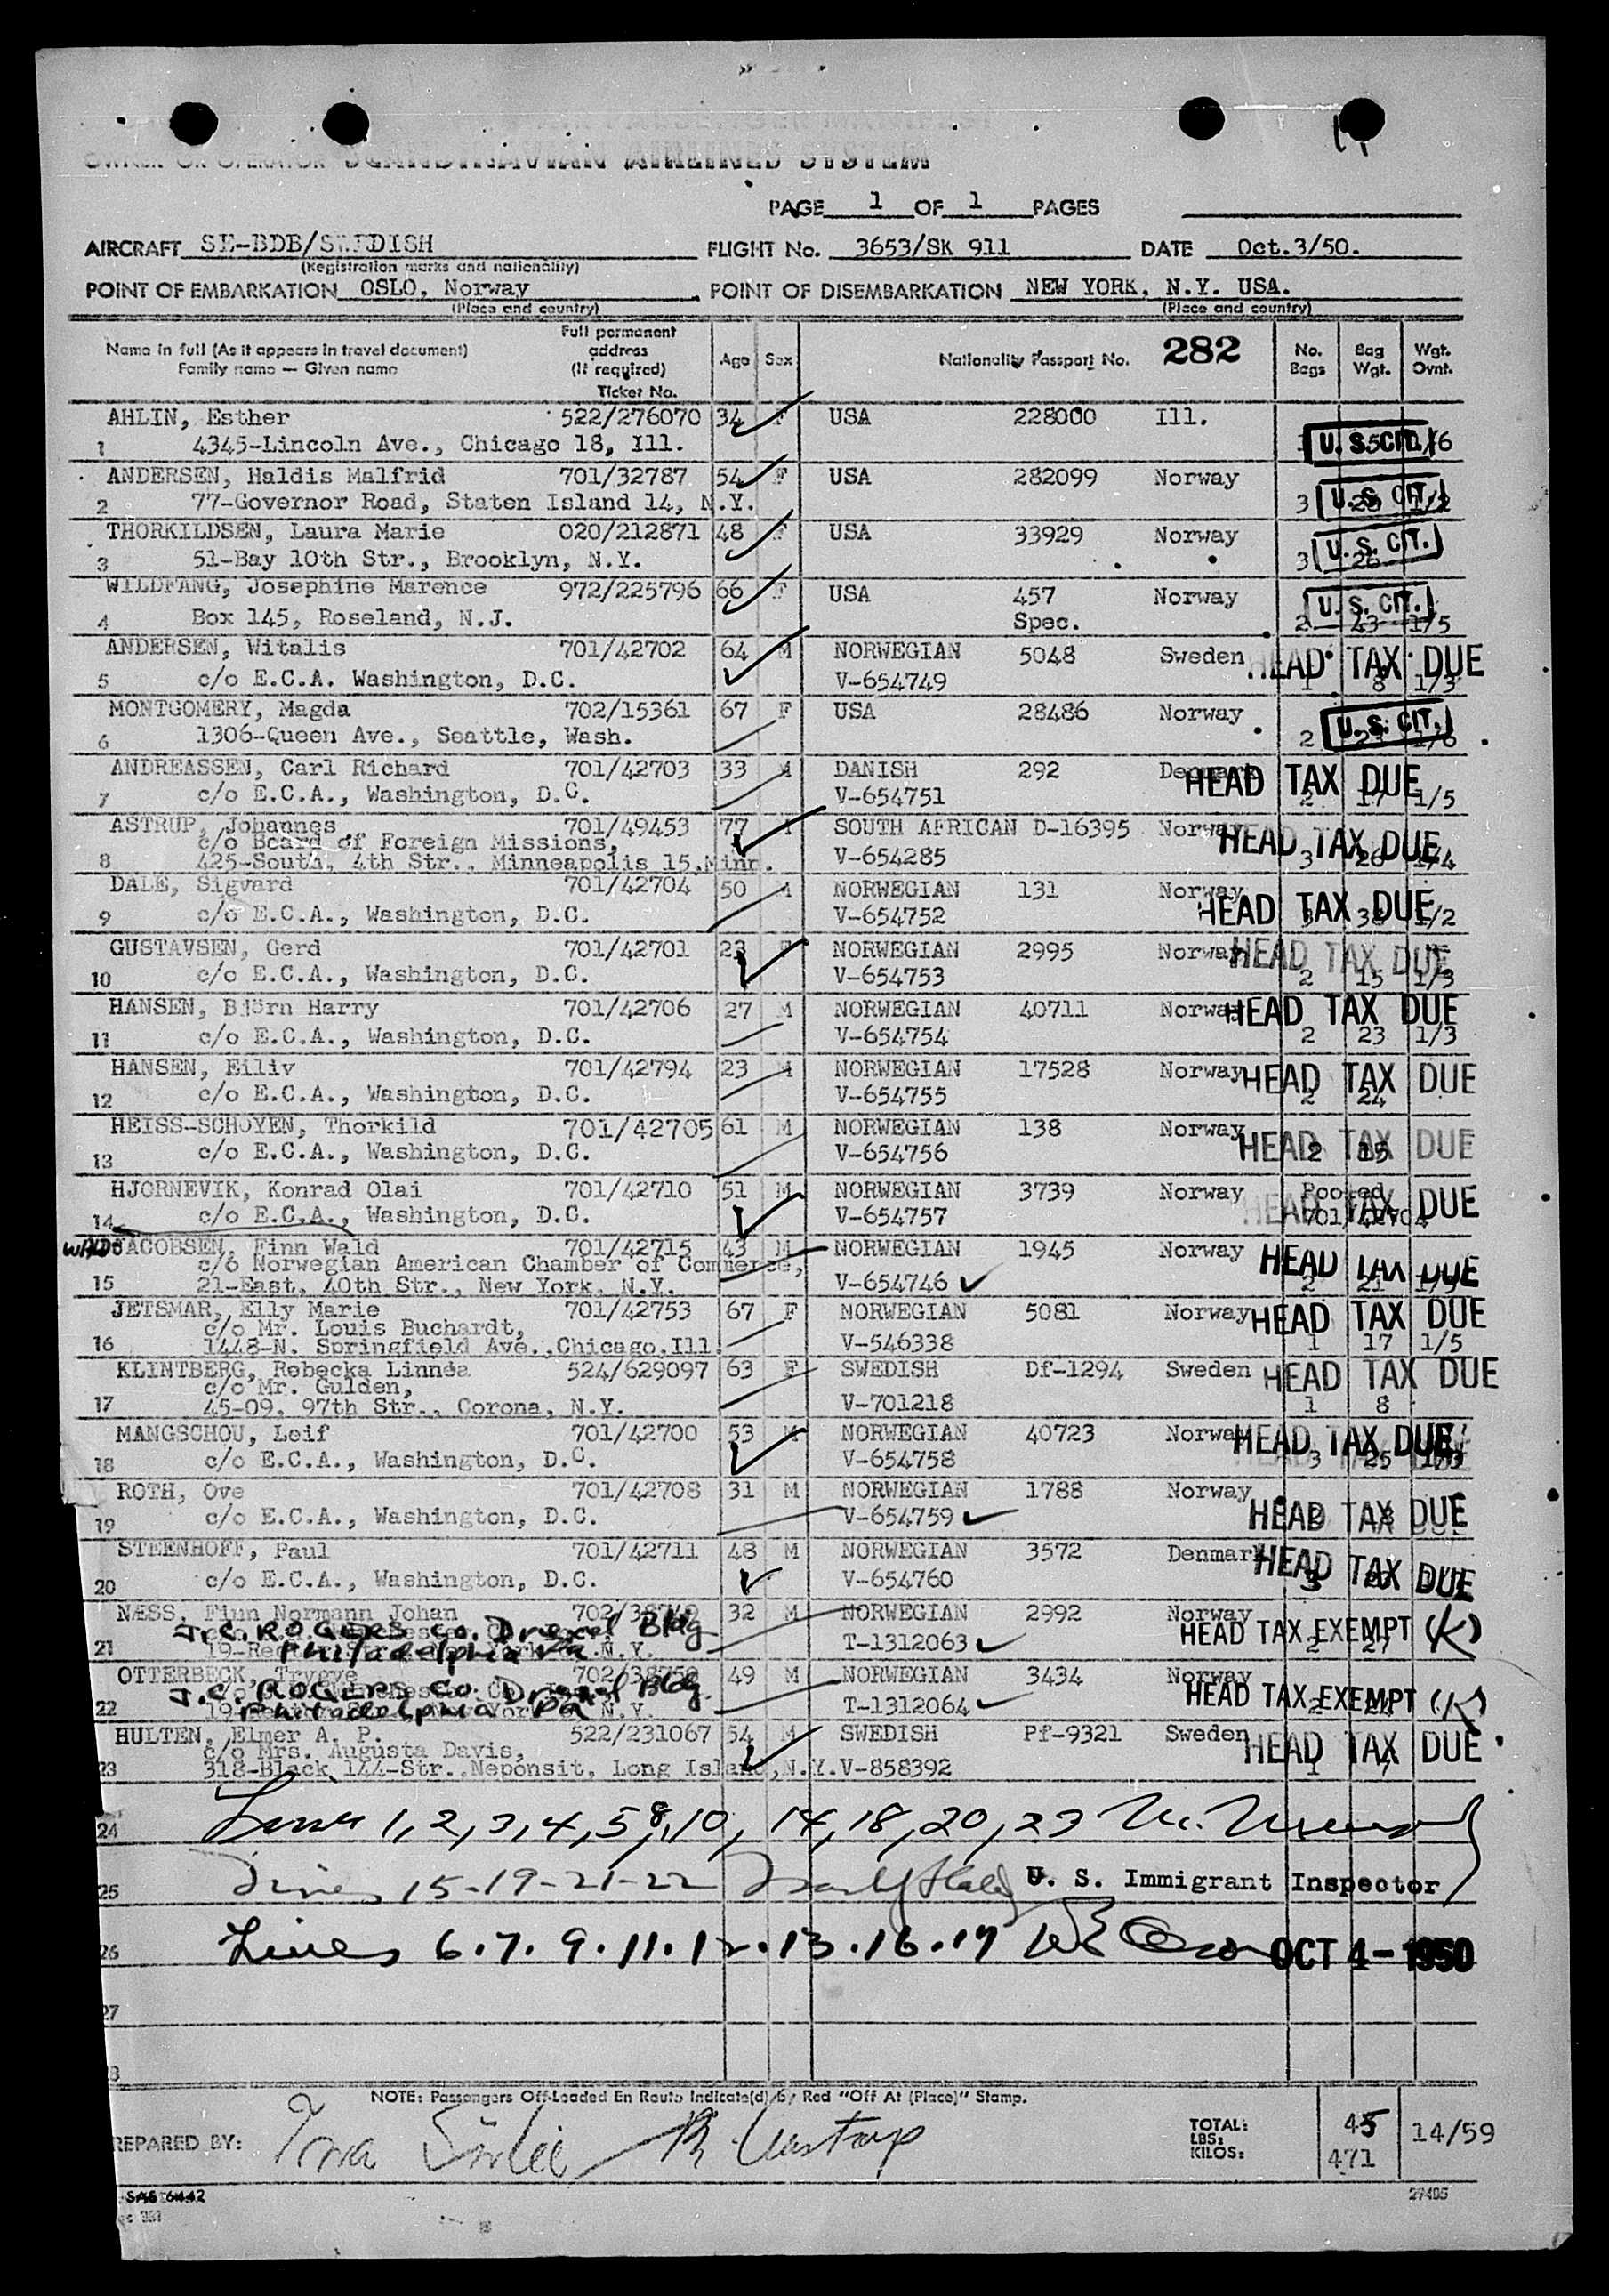 OWNER OR OPERATOR SCANDINAVIAN AIRLINES SYSTEM
PAGE 1 OF 1 PAGES
AIRCRAFT SE-BDB/SWEDISH FLIGHT No. 3653/SK 911 DATE Oct.3/50.
(Registration marks and nationality)
POINT OF EMBARKATION OSLO, Norway POINT OF DISEMBARKATION NEW YORK, N.Y. USA.
(Place and country) (Place and country)
Name in full (As it appears in travel document) Family name — Given name Full permanent address (If required) Ticket No. Age Sex Nationality Passport No. 282 No. Bags Bag Wgt. Wgt. Ovnt.
AHLIN, Esther 522/276070 34 F USA 228000 Ill.
1 4345-Lincoln Ave., Chicago 18, Ill. U. S. CIT.
ANDERSEN, Haldis Malfrid 701/32787 54 F USA 282099 Norway
2 77-Governor Road, Staten Island 14, N.Y. 3 U. S. CIT. 1/2
THORKILDSEN, Laura Marie 020/212871 48 F USA 33929 Norway
3 51-Bay 10th Str., Brooklyn, N.Y. 3 26 U. S. CIT.
WILDFANG, Josephine Marence 972/225796 66 F USA 457 Norway
4 Box 145, Roseland, N.J. Spec. 2 43 1/5 U. S. CIT.
ANDERSEN, Witalis 701/42702 64 M NORWEGIAN 5048 Sweden HEAD TAX DUE
5 c/o E.C.A. Washington, D.C. V-654749 1 8 1/3
MONTGOMERY, Magda 702/15361 67 F USA 28486 Norway
6 1306-Queen Ave., Seattle, Wash. 2 U. S. CIT. 1/6
ANDREASSEN, Carl Richard 701/42703 33 M DANISH 292 Denmark HEAD TAX DUE
7 c/o E.C.A., Washington, D.C. V-654751 2 17 1/5
ASTRUP, Johannes 701/49453 77 M SOUTH AFRICAN D-16395 Norway HEAD TAX DUE
c/o Board of Foreign Missions,
8 425-South, 4th Str., Minneapolis 15,Minn. V-654285 3 26 1/4
DALE, Sigvard 701/42704 50 M NORWEGIAN 131 Norway HEAD TAX DUE
9 c/o E.C.A., Washington, D.C. V-654752 3 38 1/2
GUSTAVSEN, Gerd 701/42701 23 F NORWEGIAN 2995 Norway HEAD TAX DUE
10 c/o E.C.A., Washington, D.C. V-654753 2 15 1/3
HANSEN, Björn Harry 701/42706 27 M NORWEGIAN 40711 Norway HEAD TAX DUE
11 c/o E.C.A., Washington, D.C. V-654754 2 23 1/3
HANSEN, Eiliv 701/42794 23 M NORWEGIAN 17528 Norway HEAD TAX DUE
12 c/o E.C.A., Washington, D.C. V-654755 2 24
HEISS-SCHOYEN, Thorkild 701/42705 61 M NORWEGIAN 138 Norway HEAD TAX DUE
13 c/o E.C.A., Washington, D.C. V-654756 2
HJORNEVIK, Konrad Olai 701/42710 51 M NORWEGIAN 3739 Norway Pooled HEAD TAX DUE
14 c/o E.C.A., Washington, D.C. V-654757 701/42704
WALDO JACOBSEN, Finn Wald 701/42715 43 M NORWEGIAN 1945 Norway HEAD TAX DUE
c/o Norwegian American Chamber of Commerce,
15 21-East, 40th Str., New York, N.Y. V-654746 2 21
JETSMAR, Elly Marie 701/42753 67 F NORWEGIAN 5081 Norway HEAD TAX DUE
c/o Mr. Louis Buchardt,
16 1448-N. Springfield Ave.,Chicago,Ill. V-546338 1 17 1/5
KLINTBERG, Rebecka Linnéa 524/629097 63 F SWEDISH Df-1294 Sweden HEAD TAX DUE
c/o Mr. Gulden,
17 45-09, 97th Str., Corona, N.Y. V-701218 1 8
MANGSCHOU, Leif 701/42700 53 M NORWEGIAN 40723 Norway HEAD TAX DUE
18 c/o E.C.A., Washington, D.C. V-654758 3 25 1/3
ROTH, Ove 701/42708 31 M NORWEGIAN 1788 Norway
19 c/o E.C.A., Washington, D.C. V-654759 HEAD TAX DUE
STEENHOFF, Paul 701/42711 48 M NORWEGIAN 3572 Denmark HEAD TAX DUE
20 c/o E.C.A., Washington, D.C. V-654760
NÆSS, Finn Normann Johan 32 M NORWEGIAN 2992 Norway
J.C. ROGERS Co. Drexel Bldg HEAD TAX EXEMPT (K)
21 Philadelphia Pa N.Y. T-1312063 2 27
OTTERBECK, Trygve 49 M NORWEGIAN 3434 Norway
J.C. ROGERS Co. Drexel Bldg. HEAD TAX EXEMPT (K)
22 Philadelphia Pa N.Y. T-1312064
HULTEN, Elmer A. P. 522/231067 54 M SWEDISH Pf-9321 Sweden HEAD TAX DUE
c/o Mrs. Augusta Davis,
23 318-Black 144-Str.,Neponsit, Long Island,N.Y. V-858392 1 7
24 Lines 1, 2, 3, 4, 5, 8, 10, 14, 18, 20, 23
25 Lines 15-19-21-22 U. S. Immigrant Inspector
26 Lines 6.7.9.11.12.13.16.17 OCT 4-1950
27
NOTE: Passengers Off-Loaded En Route Indicate(d) by Red "Off At (Place)" Stamp.
REPARED BY: TOTAL: 45 14/59
LBS:
KILOS: 471
SAS 6442 27405